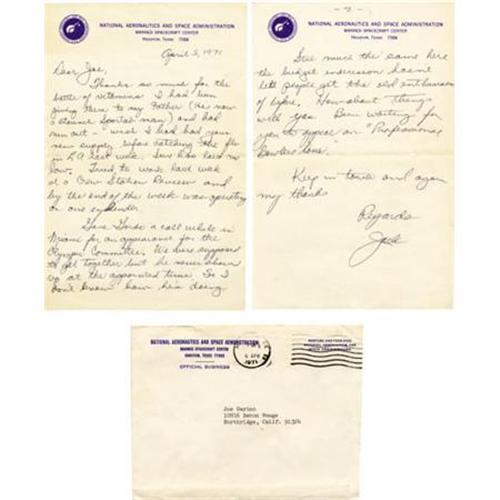 NATIONAL AERONAUTICS AND SPACE ADMINISTRATION
MANNED SPACECRAFT CENTER
HOUSTON, TEXAS 77058
April 5, 1971
Dear Joe,
Thanks so much for the
bottle of vitamins. I had been
giving them to my Father (he now
a stauner Sportsman) and had
run out - wish I had had your
new supply before catching the flu
in LA last week. Sure has laid me
low. Tried to work last week
at a Crew Station Review and
by the end of the week was operating
on one cylinder.
Gave a call while in
Miami for an appearance for the
Olympic Committee. We were supposed
to get together but he never showed
up at the appointed time. So I
don't know how he's doing
- 2 -
Still much the same here
the budget hasn't
let people get the old enthusiasm
of before. How about things
with you. Been waiting for
you to appear on "Professional
Bowlers tour."
Keep in touch and again
my thanks
Regards
Jack
NATIONAL AERONAUTICS AND SPACE ADMINISTRATION
MANNED SPACECRAFT CENTER
HOUSTON, TEXAS 77058
OFFICIAL BUSINESS
APR
1971
Joe Garino
10816 Baton Rouge
Northridge, Calif. 91324